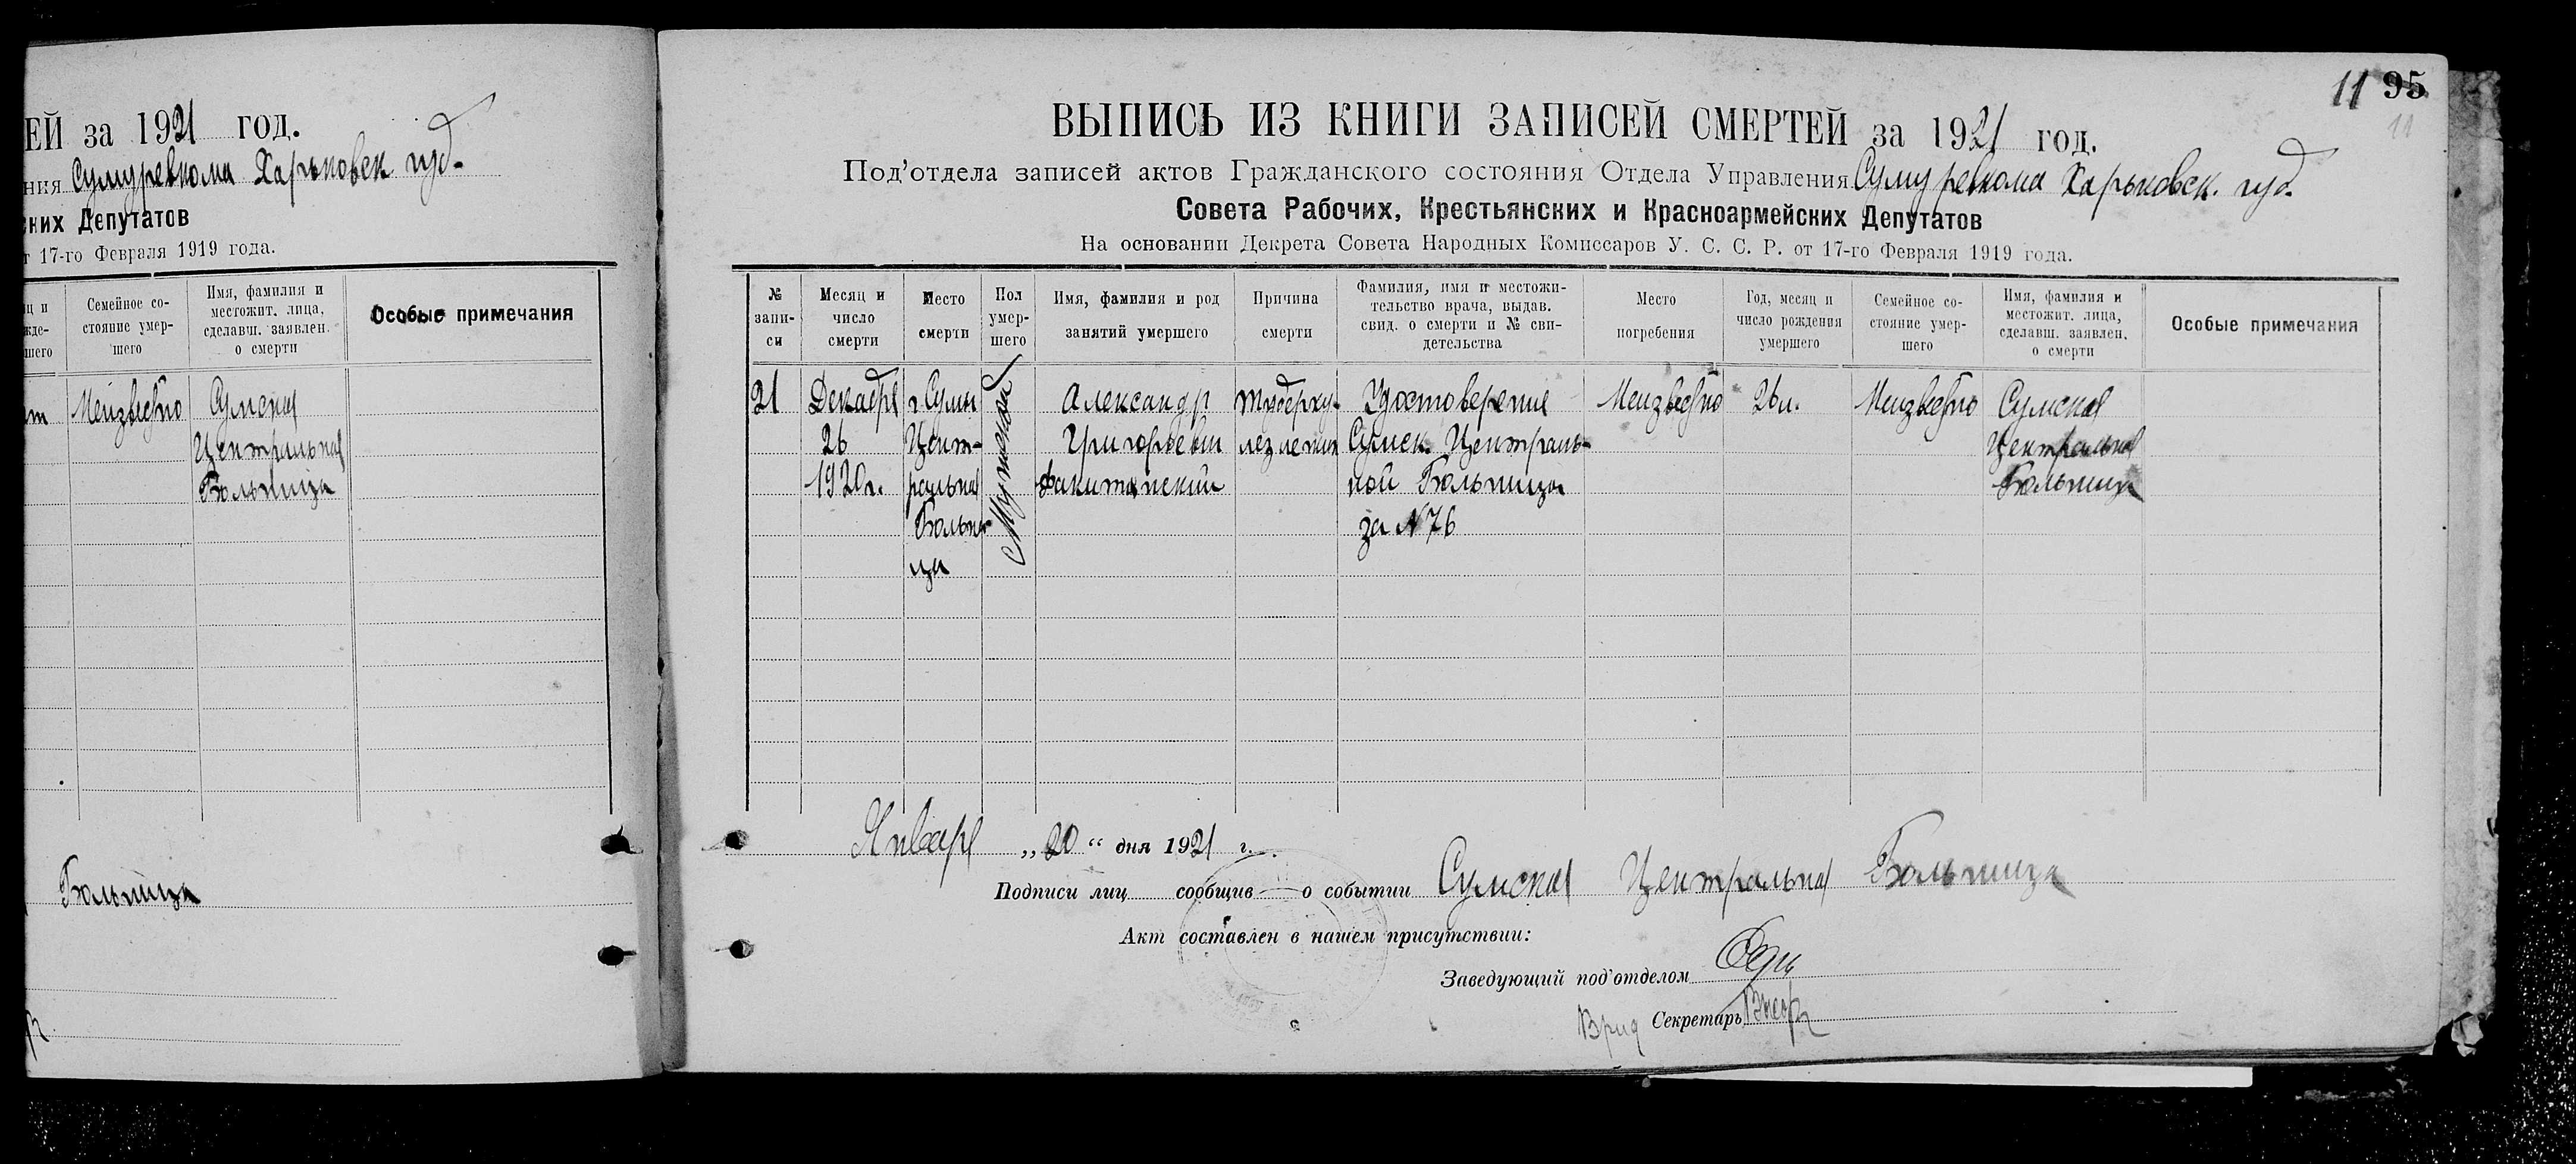 ЕЙ за 1921 год.
ния Сумуревкома Харьковск. губ.
ских Депутатов
т 17-го Февраля 1919 года.
Семейное со-
стояние умер-
шего
Имя, фамилия и
местожит. лица,
сделавш. заявлен.
о смерти
Особые примечания
Неизвестно
Сумская
Центральная
Больница
Больница
11 95
11
ВЫПИСЬ ИЗ КНИГИ ЗАПИСЕЙ СМЕРТЕЙ за 1921 год.
Под'отдела записей актов Гражданского состояния Отдела Управления Сумуревкома Харьковск. губ.
Совета Рабочих, Крестьянских и Красноармейских Депутатов
На основании Декрета Совета Народных Комиссаров У. С. С. Р. от 17-го Февраля 1919 года.
№
запи-
си
Месяц и
число
смерти
Место
смерти
Пол
умер-
шего
Имя, фамилия и род
занятий умершего
Причина
смерти
Фамилия, имя и местожи-
тельство врача, выдав.
свид. о смерти и № сви-
детельства
Место
погребения
Год, месяц и
число рождения
умершего
Семейное со-
стояние умер-
шего
Имя, фамилия и
местожит. лица,
сделавш. заявлен.
о смерти
Особые примечания
21
Декабря
26
1920г.
г. Сумы
Цент-
ральная
Больни-
ца
Мужской
Александр
Григорьевич
Туберку-
лез легких
Удостоверение
Сумск. Централь-
ной Больницы
за №76
Неизвестно
26 л.
Неизвестно
Сумская
Центральная
Больница
Января „20“ дня 1921 г.
Подписи лиц сообщив о событии Сумская Центральная Больница
Акт составлен в нашем присутствии:
Заведующий под'отделом
Врид Секретарь